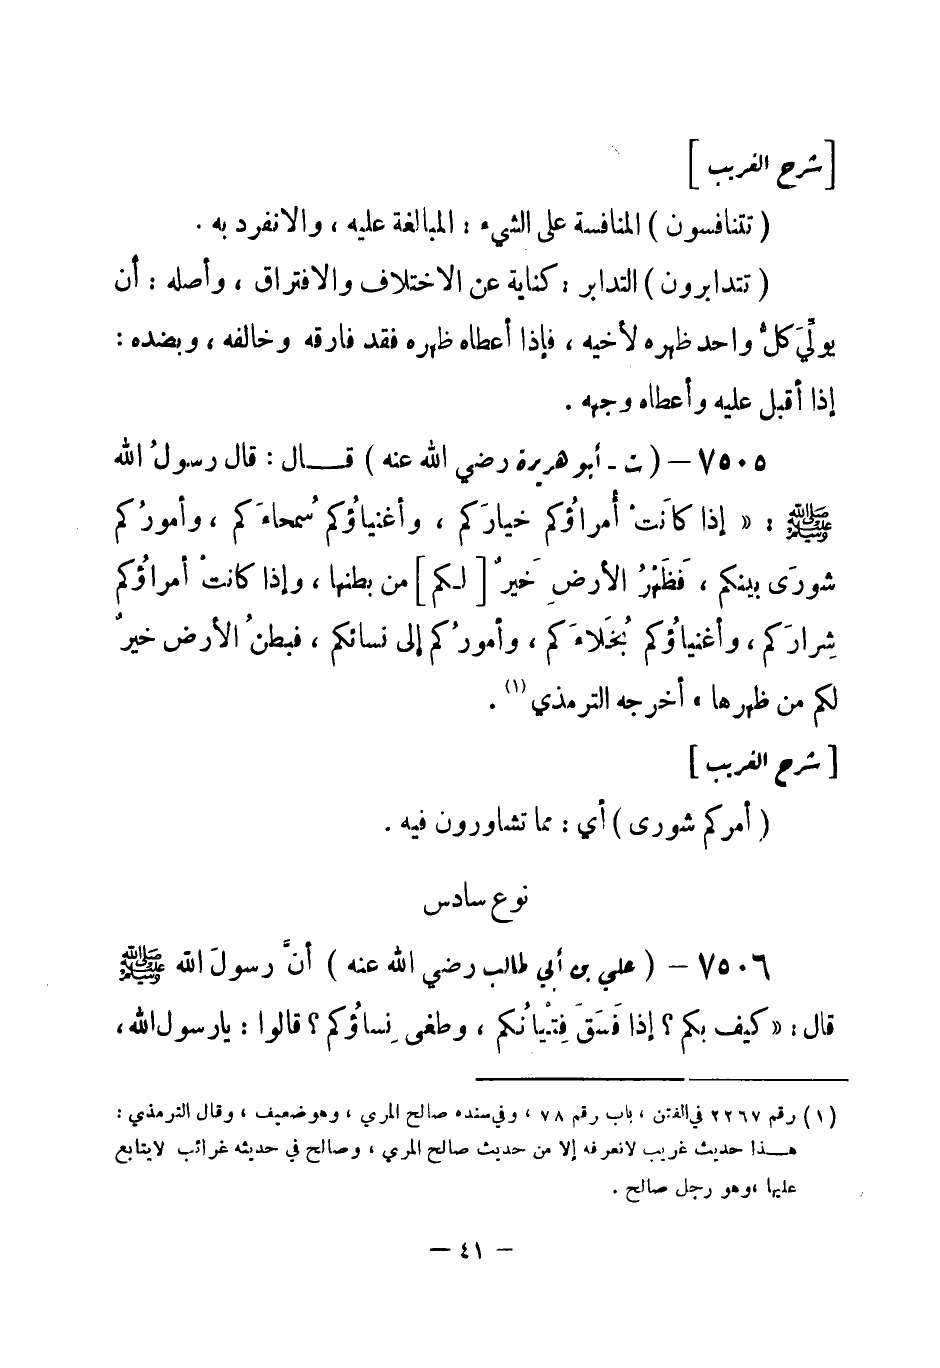 [ شرح الغريب ]
( تتنافسون ) المنافسة على الشيء : المبالغة عليه ، والانفرد به .
( تتدابرون ) التدابر : كناية عن الاختلاف والافتراق ، وأصله : أن
يولِّيَ كلُّ واحد ظهره لأخيه ، فإذا أعطاه ظهره فقد فارقه وخالفه ، وبضده :
إذا أقبل عليه وأعطاه وجهه .
٧٥٠٥ – ( ت - أبو هريرة رضي الله عنه ) قــال : قال رسولُ الله
ﷺ : « إذا كانَتْ أُمراؤُكم خيارَكم ، وأغنياؤُكم سُمحاءَكم ، وأمورُكم
شورَى بينكم ، فَظَهْرُ الأرضِ خَيرٌ [ لـكم ] من بطنها ، وإذا كانتْ أمراؤُكم
شِرارَكم ، وأغنياؤُكم بُخَلاءَكم ، وأمورُكم إلى نسائكم ، فبطنُ الأرض خيرٌ
لكم من ظهرها » أخرجه الترمذي (١) .
[ شرح الغريب ]
( أمركم شورى ) أي : مما تشاورون فيه .
نوع سادس
٧٥٠٦ – ( علي بن أبي طالب رضي الله عنه ) أنَّ رسولَ الله ﷺ
قال : « كيف بكم ؟ إذا فَسَقَ فِتْيانُكم ، وطغى نِساؤُكم ؟ قالوا : يارسول الله ،
(١) رقم ٢٢٦٧ في الفتن ، باب رقم ٧٨ ، وفي سنده صالح المري ، وهو ضعيف ، وقال الترمذي :
هــذا حديث غريب لانعرفه إلا من حديث صالح المري ، وصالح في حديثه غرائب لايتابع
عليها ،وهو رجل صالح .
– ٤١ –